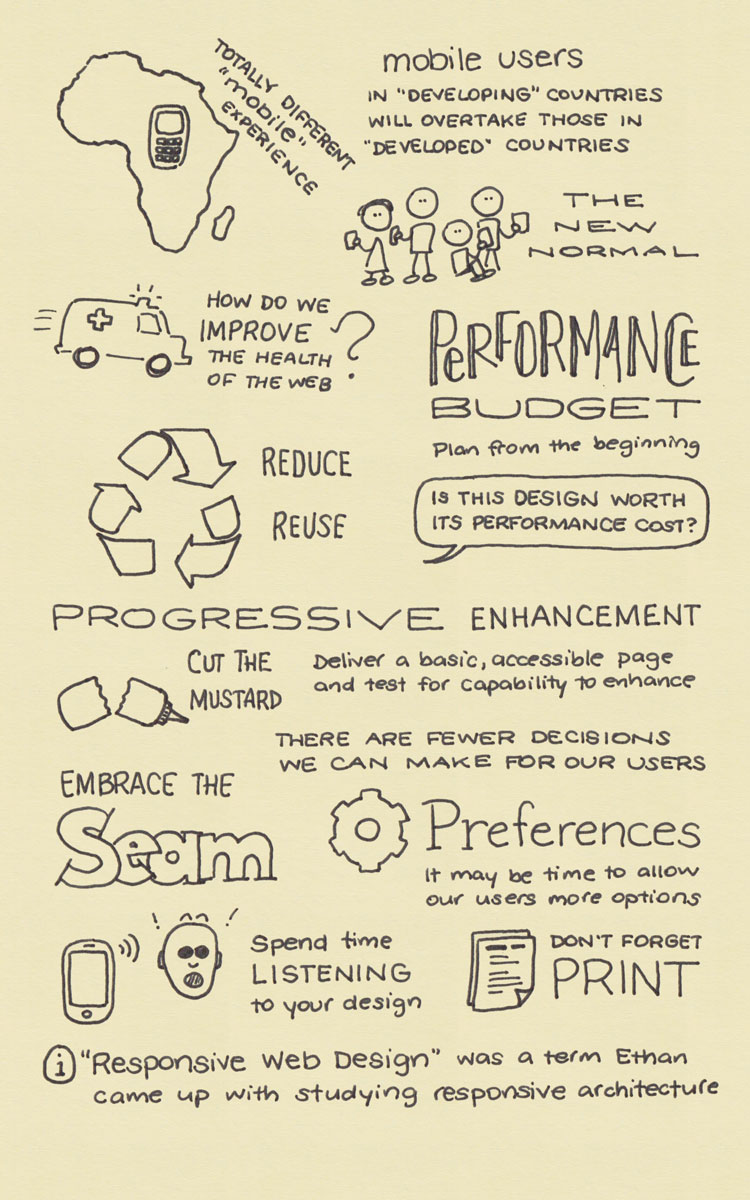 TOTALLY DIFFERENT
"mobile"
EXPERIENCE
mobile users
IN "DEVELOPING" COUNTRIES
WILL OVERTAKE THOSE IN
"DEVELOPED" COUNTRIES
THE
NEW
NORMAL
HOW DO WE
IMPROVE
THE HEALTH
OF THE WEB
?
PERFORMANCE
BUDGET
Plan from the beginning
REDUCE
REUSE
IS THIS DESIGN WORTH
ITS PERFORMANCE COST?
PROGRESSIVE ENHANCEMENT
CUT THE
MUSTARD
Deliver a basic, accessible page
and test for capability to enhance
THERE ARE FEWER DECISIONS
WE CAN MAKE FOR OUR USERS
EMBRACE THE
Seam
Preferences
It may be time to allow
our users more options
Spend time
LISTENING
to your design
DON'T FORGET
PRINT
i "Responsive Web Design" was a term Ethan
came up with studying responsive architecture